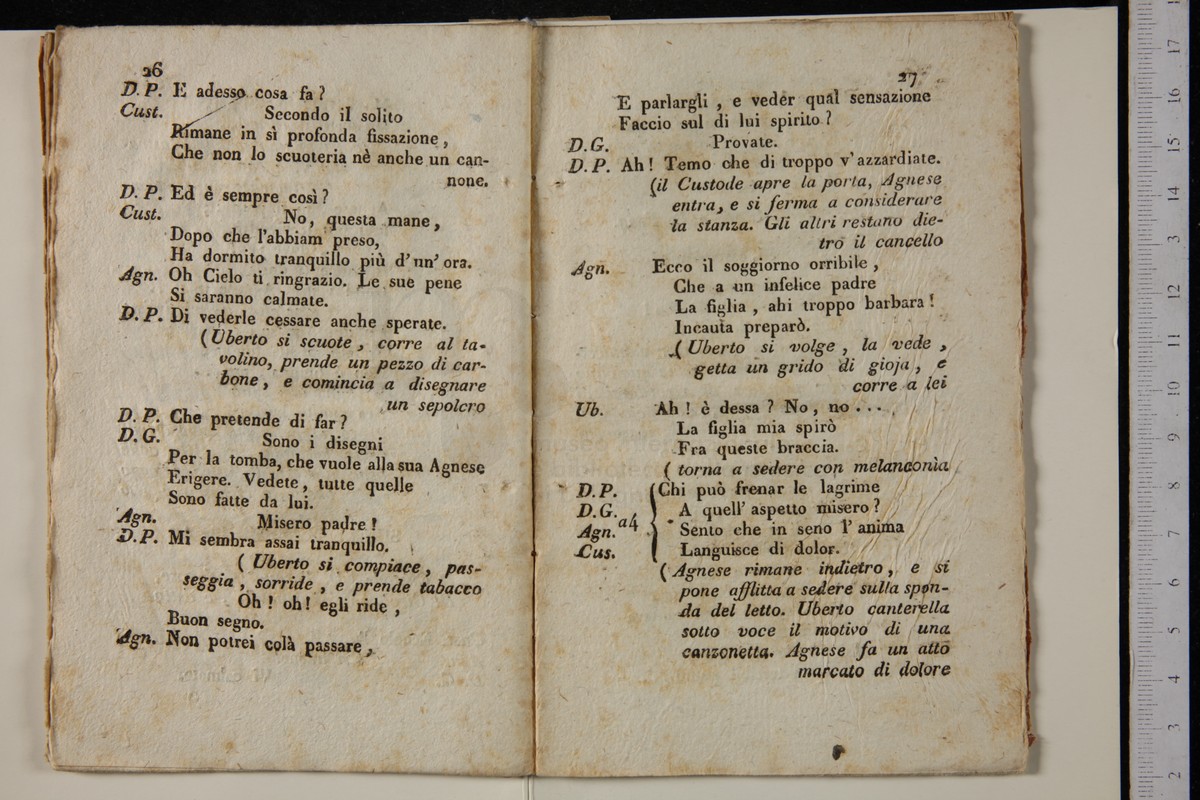 26
D. P. E adesso cosa fa ?
Cust. Secondo il solito
Rimane in sì profonda fissazione ,
Che non lo scuoteria nè anche un can-
none.
D. P. Ed è sempre così ?
Cust. No, questa mane ,
Dopo che l'abbiam preso,
Ha dormito tranquillo più d'un' ora.
Agn. Oh Cielo ti ringrazio. Le sue pene
Si saranno calmate.
D. P. Di vederle cessare anche sperate.
( Uberto si scuote , corre al ta-
volino, prende un pezzo di car-
bone , e comincia a disegnare
un sepolcro
D. P. Che pretende di far ?
D. G. Sono i disegni
Per la tomba, che vuole alla sua Agnese
Erigere. Vedete, tutte quelle
Sono fatte da lui.
Agn. Misero padre !
D.P. Mi sembra assai tranquillo.
( Uberto si compiace , pas-
seggia , sorride , e prende tabacco
Oh ! oh! egli ride ,
Buon segno.
Agn. Non potrei colà passare ,
27
E parlargli , e veder qual sensazione
Faccio sul di lui spirito ?
D.G. Provate.
D. P. Ah ! Temo che di troppo v' azzardiate.
(il Custode apre la porta, Agnese
entra, e si ferma a considerare
la stanza. Gli altri restano die-
tro il cancello
Agn. Ecco il soggiorno orribile ,
Che a un infelice padre
La figlia , ahi troppo barbara !
Incauta preparò.
( Uberto si volge , la vede ,
getta un grido di gioja , e
corre a lei
Ub. Ah ! è dessa ? No , no . . .
La figlia mia spirò
Fra queste braccia.
( torna a sedere con melanconìa
D.P. Chi può frenar le lagrime
D.G. A quell' aspetto misero ?
Agn. a4 Sento che in seno l' anima
Cus. Languisce di dolor.
( Agnese rimane indietro , e si
pone afflitta a sedere sulla spon-
da del letto. Uberto canterella
sotto voce il motivo di una
canzonetta. Agnese fa un atto
marcato di dolore
17
16
15
14
13
12
11
10
9
8
7
6
5
4
3
2